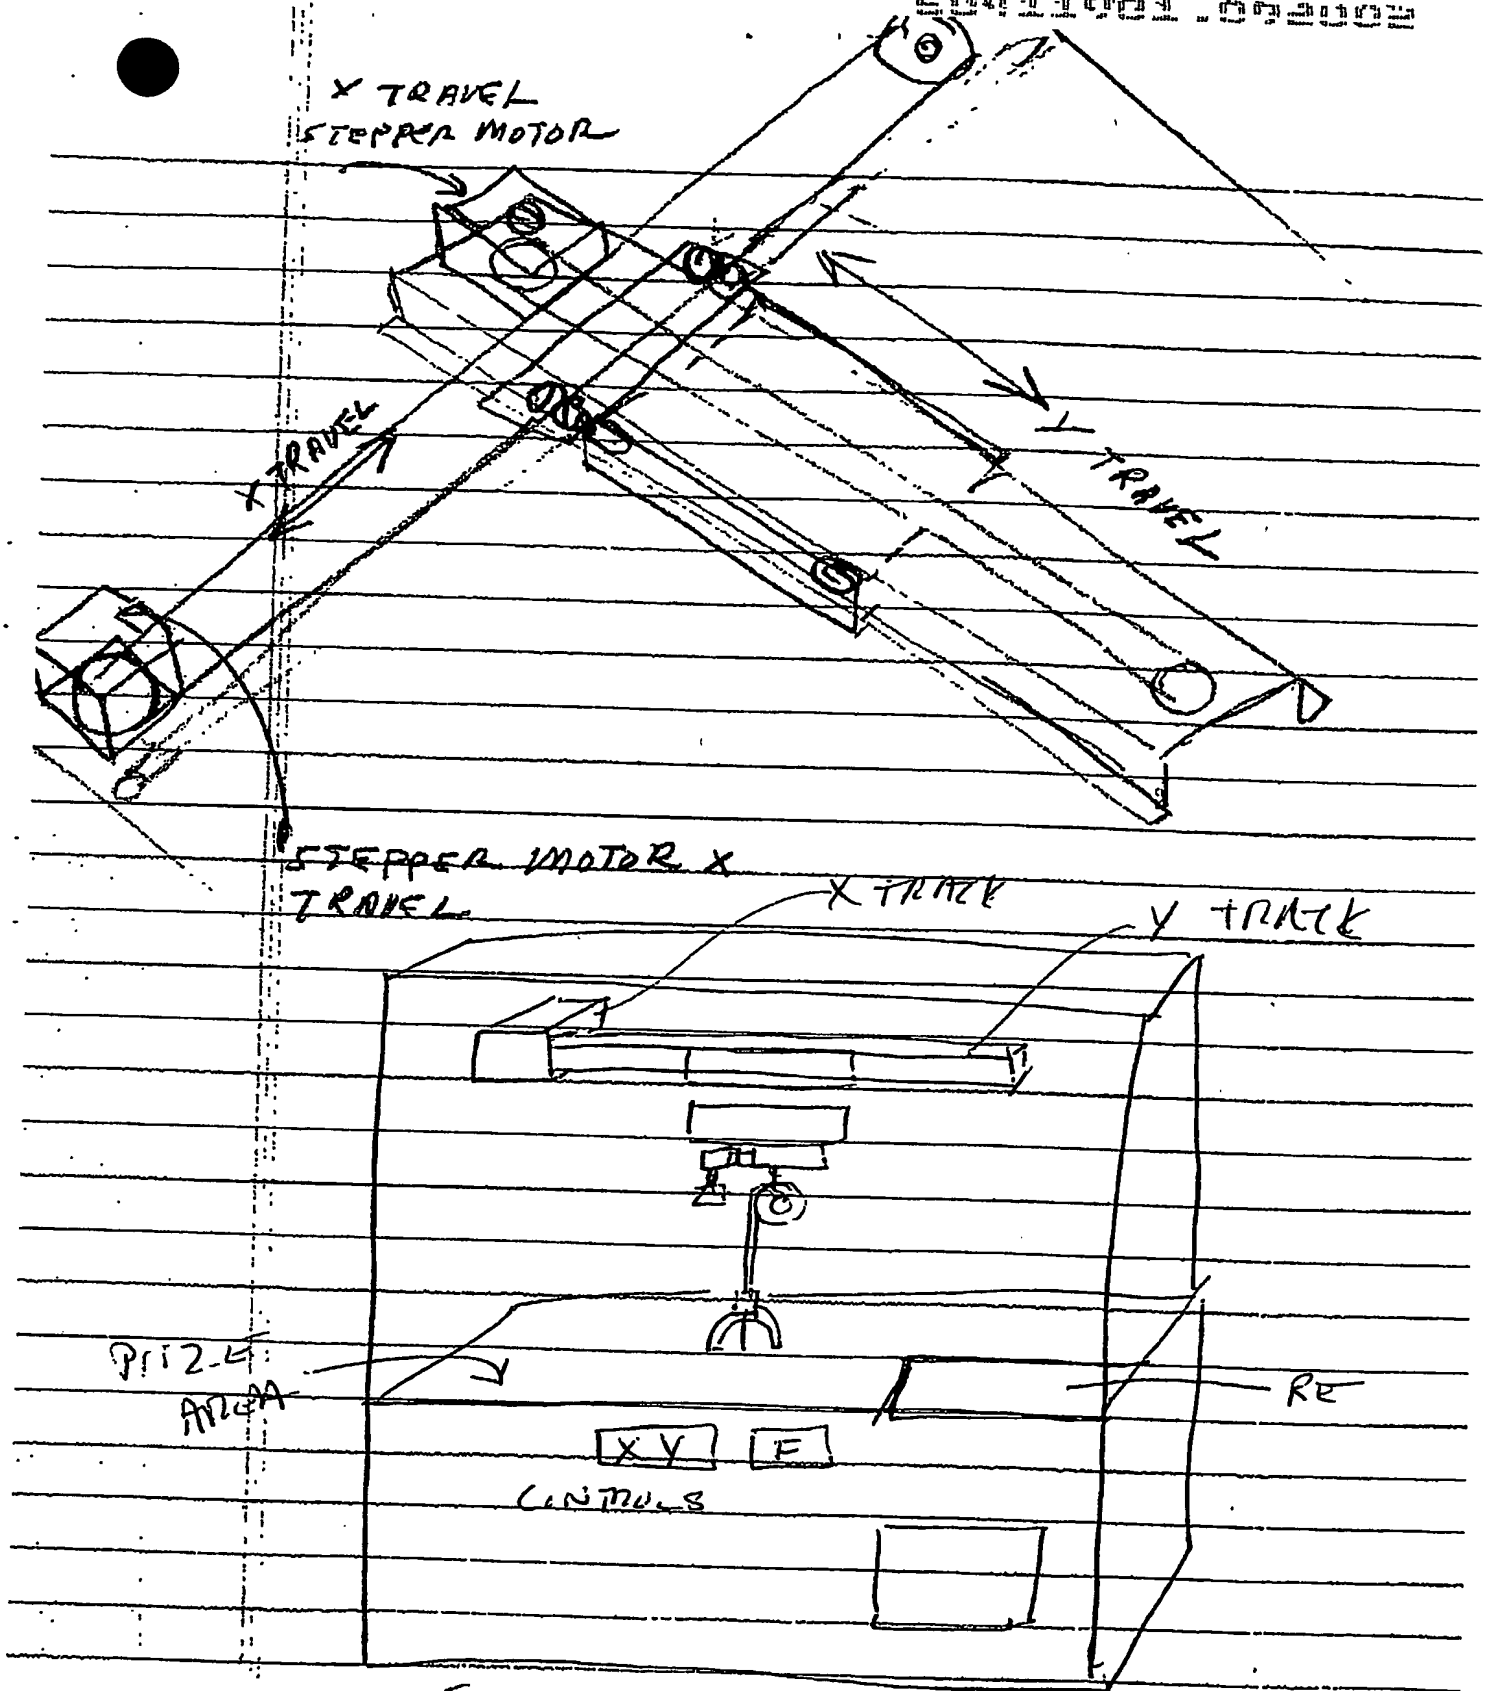 X TRAVEL
STEPPER MOTOR
X TRAVEL
TRAVEL
STEPPER MOTOR X
TRAVEL
X TRACK
Y TRACK
AREA
RE
X Y
F
CONTROLS